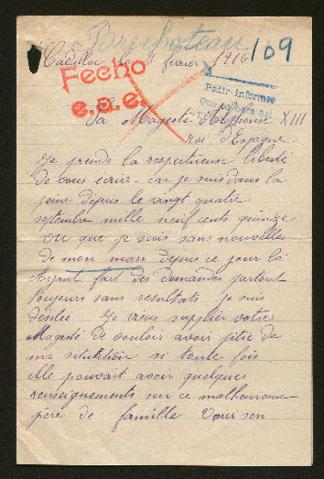 Bruchateau 109
Cadillac le 1 fevrier 1916
Fecho
e.a.e.
Pedir informes
Sa Majesté Alphonse XIII
roi d'Espagne
Je prends la respectueuse liberté
de vous ecrire car je suis dans la
peine depuis le vingt quatre
septembre mille neuf cents quinze
vu que je suis sans nouvelles
de mon mari depuis ce jour là
Ayant fait des demandes partout
toujours sans resultats je suis
désolée Je viens supplier votre
Magesté de vouloir avoir pitié de
ma situtation si toute fois
elle pouvait avoir quelques
renseignements sur ce malheureux
père de famille Voici son